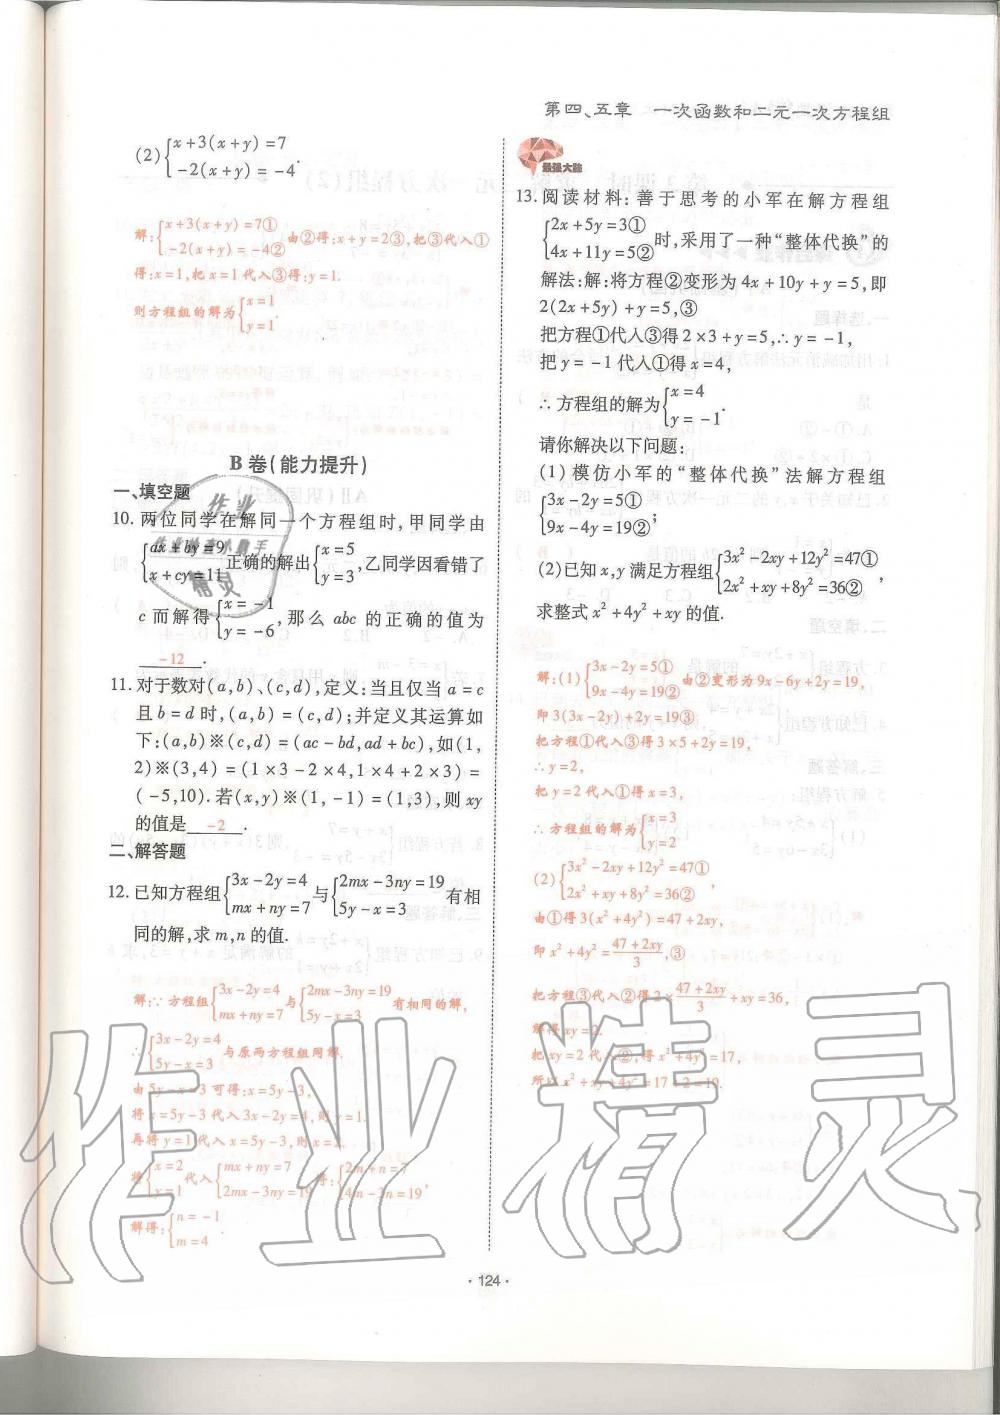 第四、五章 一次函数和二元一次方程组
(2){x+3(x+y)=7
-2(x+y)=-4.
解:{x+3(x+y)=7①
-2(x+y)=-4② 由②得:x+y=2③,把③代入①
得:x=1,把x=1代入③得:y=1.
则方程组的解为{x=1
y=1.
B卷(能力提升)
一、填空题
10.两位同学在解同一个方程组时,甲同学由
{ax+by=9
x+cy=11 正确的解出{x=5
y=3,乙同学因看错了
c而解得{x=-1
y=-6,那么abc的正确的值为
-12.
11.对于数对(a,b)、(c,d),定义:当且仅当a=c
且b=d时,(a,b)=(c,d);并定义其运算如
下:(a,b)※(c,d)=(ac-bd,ad+bc),如(1,
2)※(3,4)=(1×3-2×4,1×4+2×3)=
(-5,10).若(x,y)※(1,-1)=(1,3),则xy
的值是 -2.
二、解答题
12.已知方程组{3x-2y=4
mx+ny=7与{2mx-3ny=19
5y-x=3 有相
同的解,求m,n的值.
解:∵方程组{3x-2y=4
mx+ny=7与{2mx-3ny=19
5y-x=3 有相同的解,
∴{3x-2y=4
5y-x=3 与原两方程组同解.
由5y-x=3可得:x=5y-3,
将x=5y-3代入3x-2y=4,则y=1.
再将y=1代入x=5y-3,则x=2.
将{x=2
y=1代入{mx+ny=7
2mx-3ny=19 得:{2m+n=7
4m-3n=19,
解得:{n=-1
m=4.
最强大脑
13.阅读材料:善于思考的小军在解方程组
{2x+5y=3①
4x+11y=5②时,采用了一种“整体代换”的
解法:解:将方程②变形为4x+10y+y=5,即
2(2x+5y)+y=5,③
把方程①代入③得2×3+y=5,∴y=-1,
把y=-1代入①得x=4,
∴方程组的解为{x=4
y=-1.
请你解决以下问题:
(1)模仿小军的“整体代换”法解方程组
{3x-2y=5①
9x-4y=19②;
(2)已知x,y满足方程组{3x²-2xy+12y²=47①
2x²+xy+8y²=36②,
求整式x²+4y²+xy的值.
解:(1){3x-2y=5①
9x-4y=19② 由②变形为9x-6y+2y=19,
即3(3x-2y)+2y=19③
把方程①代入③得3×5+2y=19,
∴y=2,
把y=2代入①得x=3,
∴方程组的解为{x=3
y=2
(2){3x²-2xy+12y²=47①
2x²+xy+8y²=36②
由①得3(x²+4y²)=47+2xy,
即x²+4y²=(47+2xy)/3,③
把方程③代入②得2×(47+2xy)/3+xy=36,
解得xy=2.
把xy=2代入②,得x²+4y²=17,
所以x²+xy+4y²=17+2=19.
·124·
作业精灵
作业
作业检查小助手
精灵